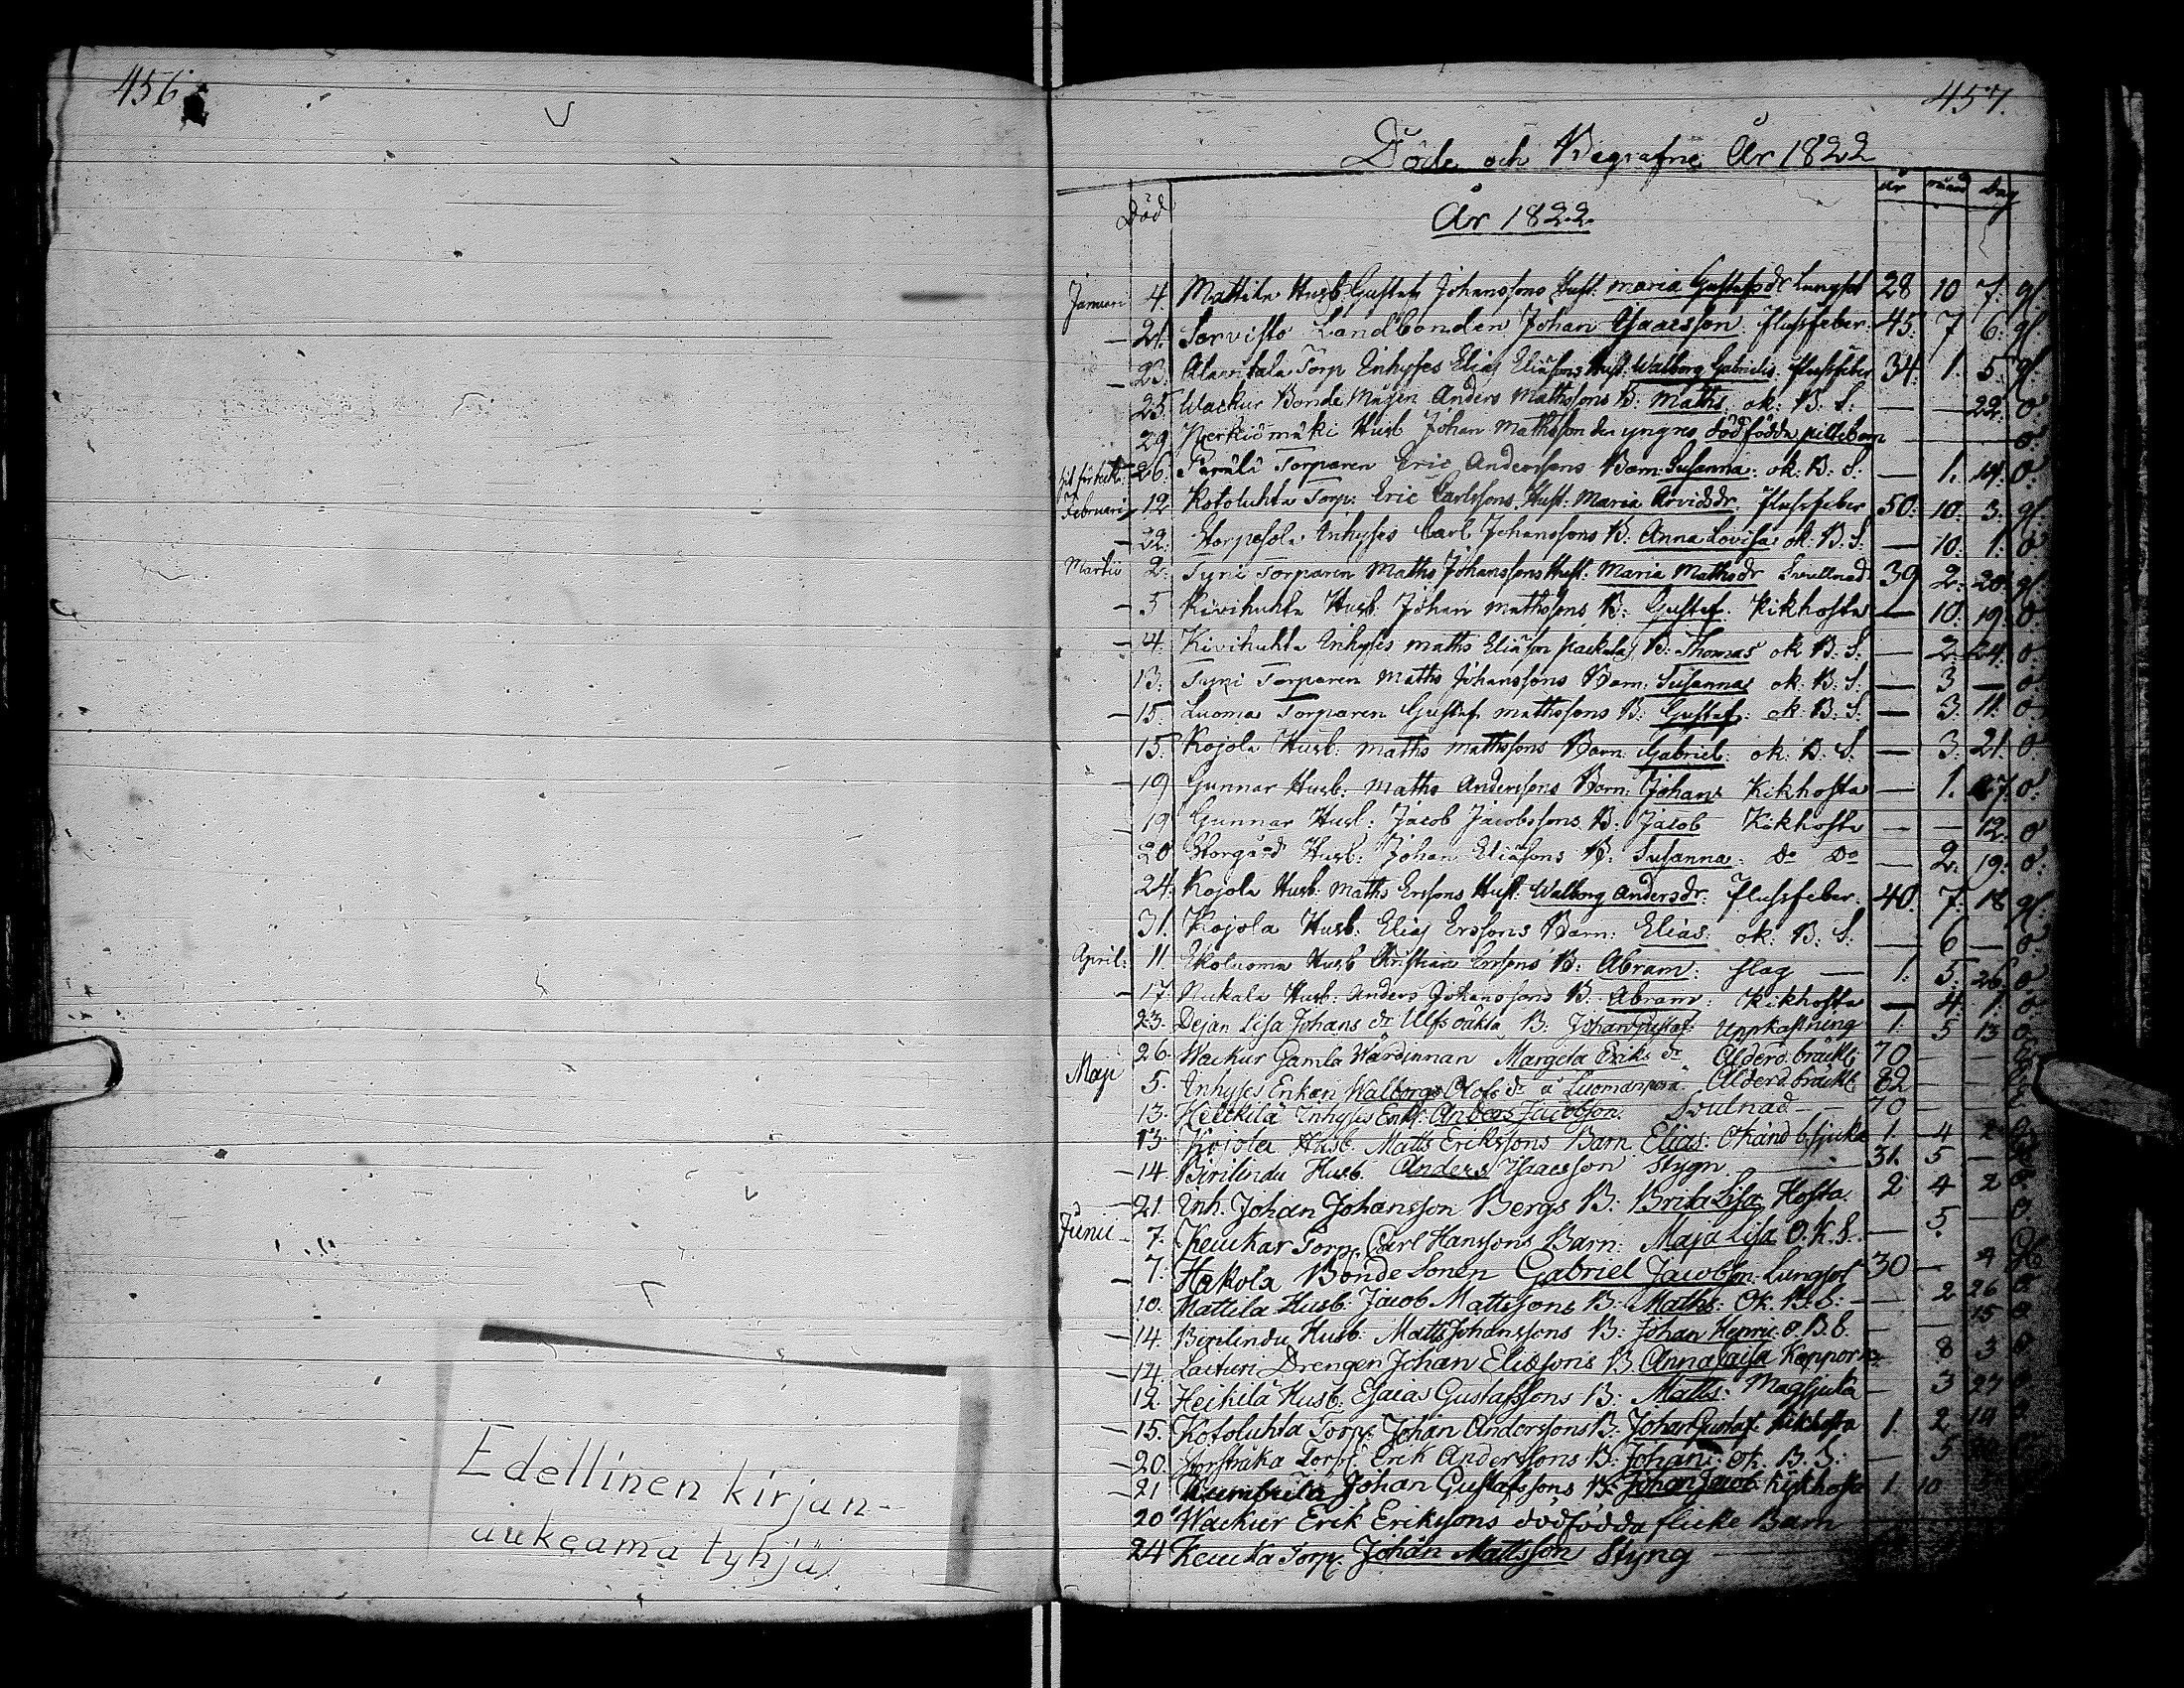 456
Edellinen kirjan-
aukeama tyhjä
457.
Döde och Begrafne År 1822
Död år månad dag
År 1822
Januari 4 Mattila Husb. Gustafs Johanssons Hust. Maria Gustafsdr Lungsot 28 10 7. gf.
— 21. Sorvisto Landbonden Johan Isaacsson. flussfeber. 45. 7 6. gf.
— 23. Alavitala Torp Inhyses Elias Eliäsons Hust. Walborg Gabrielsd. flussfeber 34. 1. 5. gf.
25. Wackur Bonde Mågen Anders Mathssons B: Maths. ok: B: S: — — 22. o.
29. Herkiömäki Husb Johan Mathsson den yngres dödfödda pilltebarn — — — o.
26. Torparen Eric Anderssons Barn: Susanna: ok: B: S: — 1. 14. o.
Februari 12 Kotoluhta Torp: Eric Carlssons Hust: Maria Arvidsdr. flussfeber 50. 10. 3. gf.
— 22. Storpesola Inhyses Carl Johanssons B: Anna Lovisa ok: B: S: — 10. 1. o
Martii 2. Tyni Torparen Maths Johanssons Hust: Maria Mathsdr Svullnad 39 2. 20. gf.
— 5 Kivihuhta Husb. Johan Mathssons B: Gustaf. Kikhosta — 10. 19. o.
— 4. Kivihuhta Inhyses Maths Eliäson B: Thomas ok B: S: — 2. 24. o.
13. Tyni Torparen Maths Johanssons Barn: Susanna ok: B: S: — 3 — o.
— 15. Luoma Torparen Gustaf Mathssons B: Gustaf: ok: B: S: — 3. 11. o.
15. Kojola Husb: Maths Mathssons Barn: Gabriel: ok: B: S: — 3. 21. o.
— 19 Gunnar Husb: Maths Anderssons Barn: Johan Kikhosta — 1. 27. o.
— 19 Gunnar Husb: Jacob Jacobssons B: Jacob Kikhosta — — 12. o
20 Storgård Husb: Johan Eliäsons B: Susanna: do do — 2. 19. o.
24. Kojola Husb: Maths Erssons Hust: Walborg Andersdr. flussfeber. 40. 7. 18 gf.
31. Kojola Husb: Elias Erssons Barn: Elias: ok: B: S: — 6 — o
April: 11. Ekoluoma Husb Christian Erssons B: Abram: slag — 1. 5. 26. o
— 17 Husb: Anders Johanssons B: Abram: Kikhosta — 4. 1. o.
23. Dejan Lisa Johans dr oäkta B: Johan Gustaf: Uppkastning 1. 5 13 o.
26. Wackur Gamla Wärdinnan Margeta Eriks dr Ålderd. bräckl: 70 — —
Maji 5. Inhyses Enkan Walborg Olofs dr å Luomanpera. Ålderd. bräckl: 82 — —
13. Heickilä Inhyses Enkl: Anders Jacobson. Svulnad — 70 — —
13. Kojola Husb. Matts Erikssons Barn Elias: Okänd b. sjuka 1. 4 2
— 14. Birilindu Husb. Anders Isacsson stygn 31. 5 —
— 21. Inh. Johan Johansson Bergs B: Brita Lisa Hosta. 2 4 2 o
Junii — 7. Keuckar Torp. Carl Hanssons Barn: Maja Lisa O. K. S. — 5. — o
— 7. Hakola Bonde Sonen Gabriel Jacobson: Lungsot 30 — 4
10. Mattila Husb: Jacob Mattssons B: Maths: Ok. B: S: — 2 26 o
— 14. Birilindu Husb: Matts Johanssons B: Johan Henric. o. B. S. — — 15 o
— 14. Drengen Johan Eliäsons B. Anna Caisa Koppor — 8 3
12. Heikilä Husb: Esaias Gustafssons B: Matts: Magsjuka — 3 27
— 15. Kotoluhta Torp. Johan Anderssons B: Johan Gustaf kikhosta 1. 2 14
— 20. Storstråka Torp. Erik Anderssons B: Johan: ok. B. S: — 5
— 21 Johan Gustafssons B: Johan Jacob: Kikhosta 1. 10
20 Wackur Erik Erikssons dödfödda flicke Barn
24 Keucka Torp. Johan Mattsson Styng —